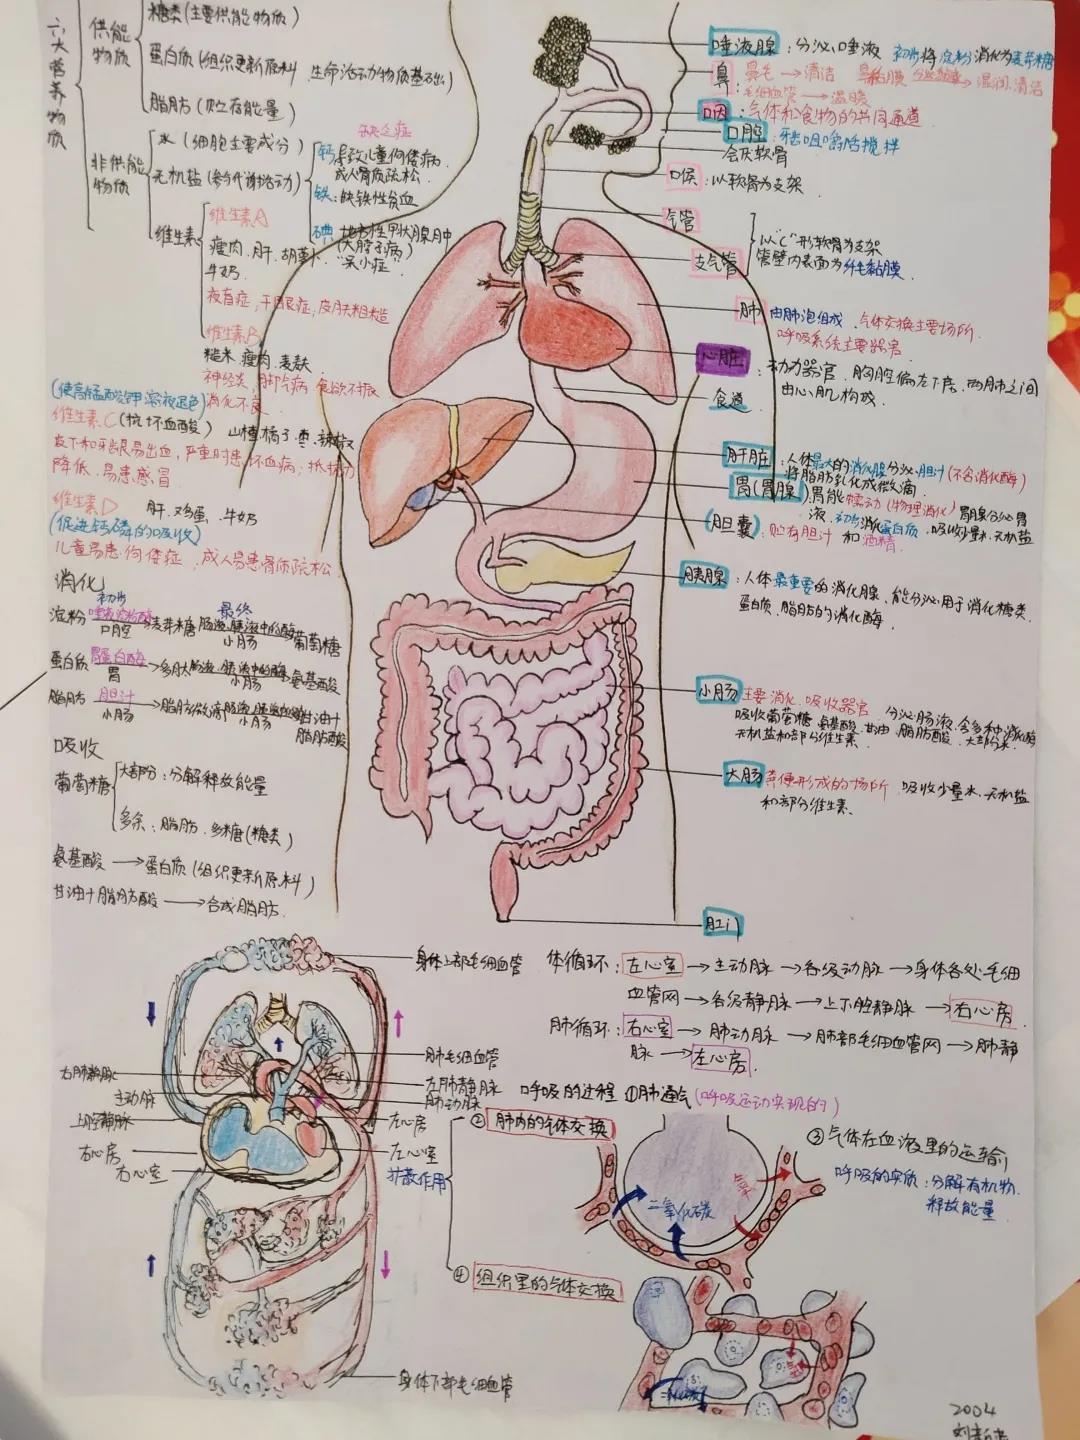 六大营养物质
供能物质
糖类(主要供能物质)
蛋白质(组织更新原料 生命活动物质基础)
脂肪(贮存能量)
非供能物质
水(细胞主要成分)
无机盐(参与代谢活动)
缺乏症
钙 导致儿童佝偻病.
成人骨质疏松.
铁: 缺铁性贫血
碘 地方性甲状腺肿
(大脖子病)
"呆小症"
维生素
维生素A
瘦肉.肝.胡萝卜.
牛奶.
夜盲症,干眼症,皮肤粗糙
维生素B
糙米.瘦肉.麦麸
神经炎,脚气病 食欲不振
消化不良
(使高锰酸钾溶液退色)
维生素C(抗坏血酸) 山楂.橘子.枣.辣椒
皮下和牙龈易出血,严重时患坏血病;抵抗力
降低.易患感冒
维生素D 肝.鸡蛋.牛奶
(促进钙磷的吸收)
儿童易患佝偻症.成人易患骨质疏松.
消化
初步 最终
淀粉 唾液淀粉酶 麦芽糖 肠液、胰液中的酶 葡萄糖
口腔 小肠
蛋白质 胃蛋白酶 多肽 肠液、胰液中的酶 氨基酸
胃 小肠
脂肪 胆汁 脂肪微滴 甘油+
小肠 小肠 脂肪酸
吸收
葡萄糖
大部分:分解释放能量
多余:脂肪.多糖(糖类)
氨基酸→蛋白质(组织更新原料)
甘油+脂肪酸→合成脂肪.
唾液腺:分泌唾液 初步将淀粉消化为麦芽糖
鼻 鼻毛→清洁 鼻黏膜 湿润.清洁
毛细血管→温暖
咽:气体和食物的共同通道
口腔:牙齿咀嚼舌搅拌
会厌软骨
喉:以软骨为支架
气管
支气管
以"C"形软骨为支架
管壁内表面为纤毛黏膜.
肺 由肺泡组成.气体交换主要场所
呼吸系统主要器官.
心脏:动力器官.胸腔偏左下方.两肺之间
由心肌构成.
食道
肝脏:人体最大的消化腺分泌胆汁(不含消化酶)
将脂肪乳化成微滴
胃(胃腺) 胃能蠕动(物理消化) 胃腺分泌胃
液.初步消化蛋白质.吸收少量水.无机盐
和酒精.
胆囊:贮有胆汁
胰腺:人体最重要的消化腺、能分泌用于消化糖类.
蛋白质.脂肪的消化酶.
小肠 主要消化.吸收器官.分泌肠液.含多种消化酶
吸收葡萄糖.氨基酸.甘油.脂肪酸.大部分水.
无机盐和部分维生素.
大肠 粪便形成的场所.吸收少量水.无机盐
和部分维生素.
肛门
身体上部毛细血管
肺毛细血管
左肺静脉
肺动脉
左心房
左心室
右肺静脉
主动脉
上腔静脉
右心房
右心室
身体下部毛细血管
体循环:左心室→主动脉→各级动脉→身体各处毛细
血管网→各级静脉→上下腔静脉→右心房.
肺循环:右心室→肺动脉→肺部毛细血管网→肺静
脉→左心房.
呼吸的过程 ①肺通气(呼吸运动实现的)
扩散作用
②肺内的气体交换
③气体在血液里的运输
呼吸的实质:分解有机物.
释放能量.
二氧化碳
氧气
④组织里的气体交换
2004